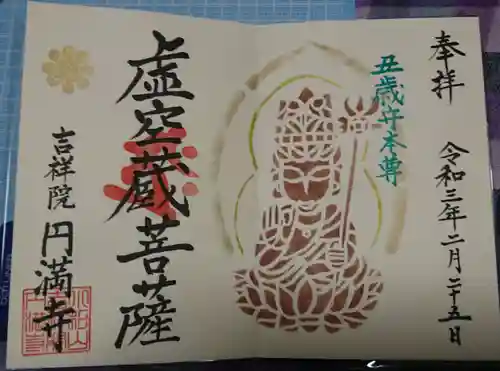 奉拝
令和三年二月二十五日
丑歳守本尊
虚空蔵菩薩
吉祥院
円満寺